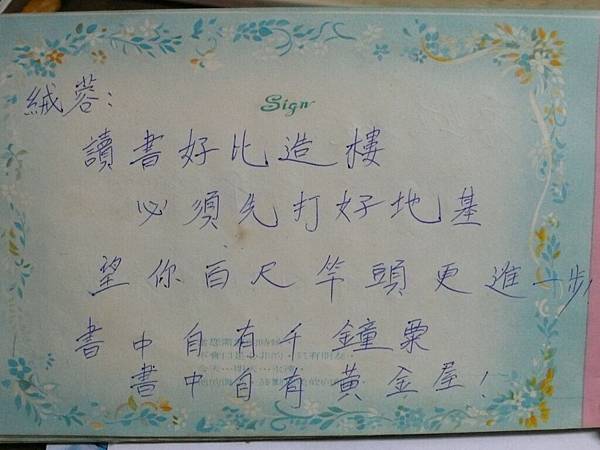 絨蓉：
Sign
讀書好比造樓
必須先打好地基
望你百尺竿頭更進一步
書中自有千鐘粟
書中自有黃金屋！